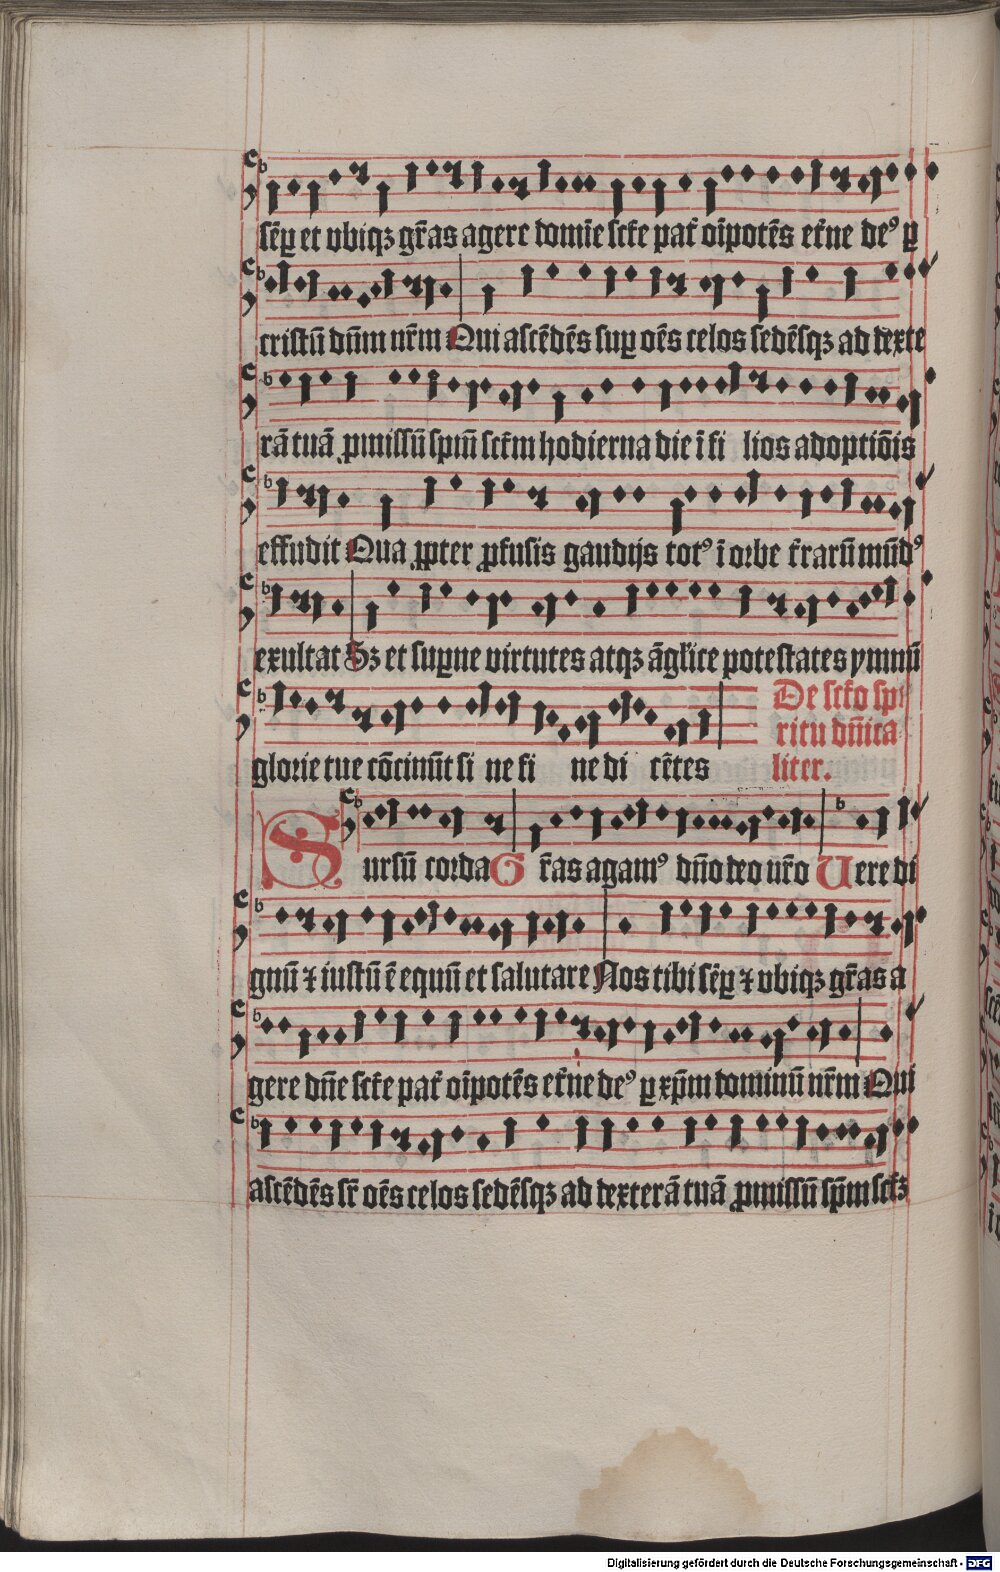 sēꝑ et vbiqꝫ gr̄as agere domīe sc̄te pat̄ oīpotēs et̄ne deꝰ ꝑ
cristū dn̄m nr̄m Qui ascēdēs suꝑ oēs celos sedēsqꝫ ad dexte
rā tuā ꝓmissū spm̄ sc̄tm hodierna die ī fi lios adoptiōis
effudit Qua ꝓpter ꝓfusis gaudijs totꝰ ī orbe t̄rarū mūdꝰ
exultat Sꝫ et suꝑne virtutes atqꝫ āgl̄ice potestates ymnū
glorie tue cōcinūt si ne fi ne di cētes
De sc̄to sp
ritu dn̄ica
liter.
Sursū corda Gr̄as agamꝰ dn̄o deo nr̄o Uere di
gnū ⁊ iustū ē equū et salutare Nos tibi sēꝑ ⁊ vbiqꝫ gr̄as a
gere dn̄e sc̄te pat̄ oīpotēs et̄ne deꝰ ꝑ xp̄m dominū nr̄m Qui
ascēdēs sr̄ oēs celos sedēsqꝫ ad dexterā tuā ꝓmissū sp̄m sc̄tꝫ
Digitalisierung gefördert durch die Deutsche Forschungsgemeinschaft - DFG